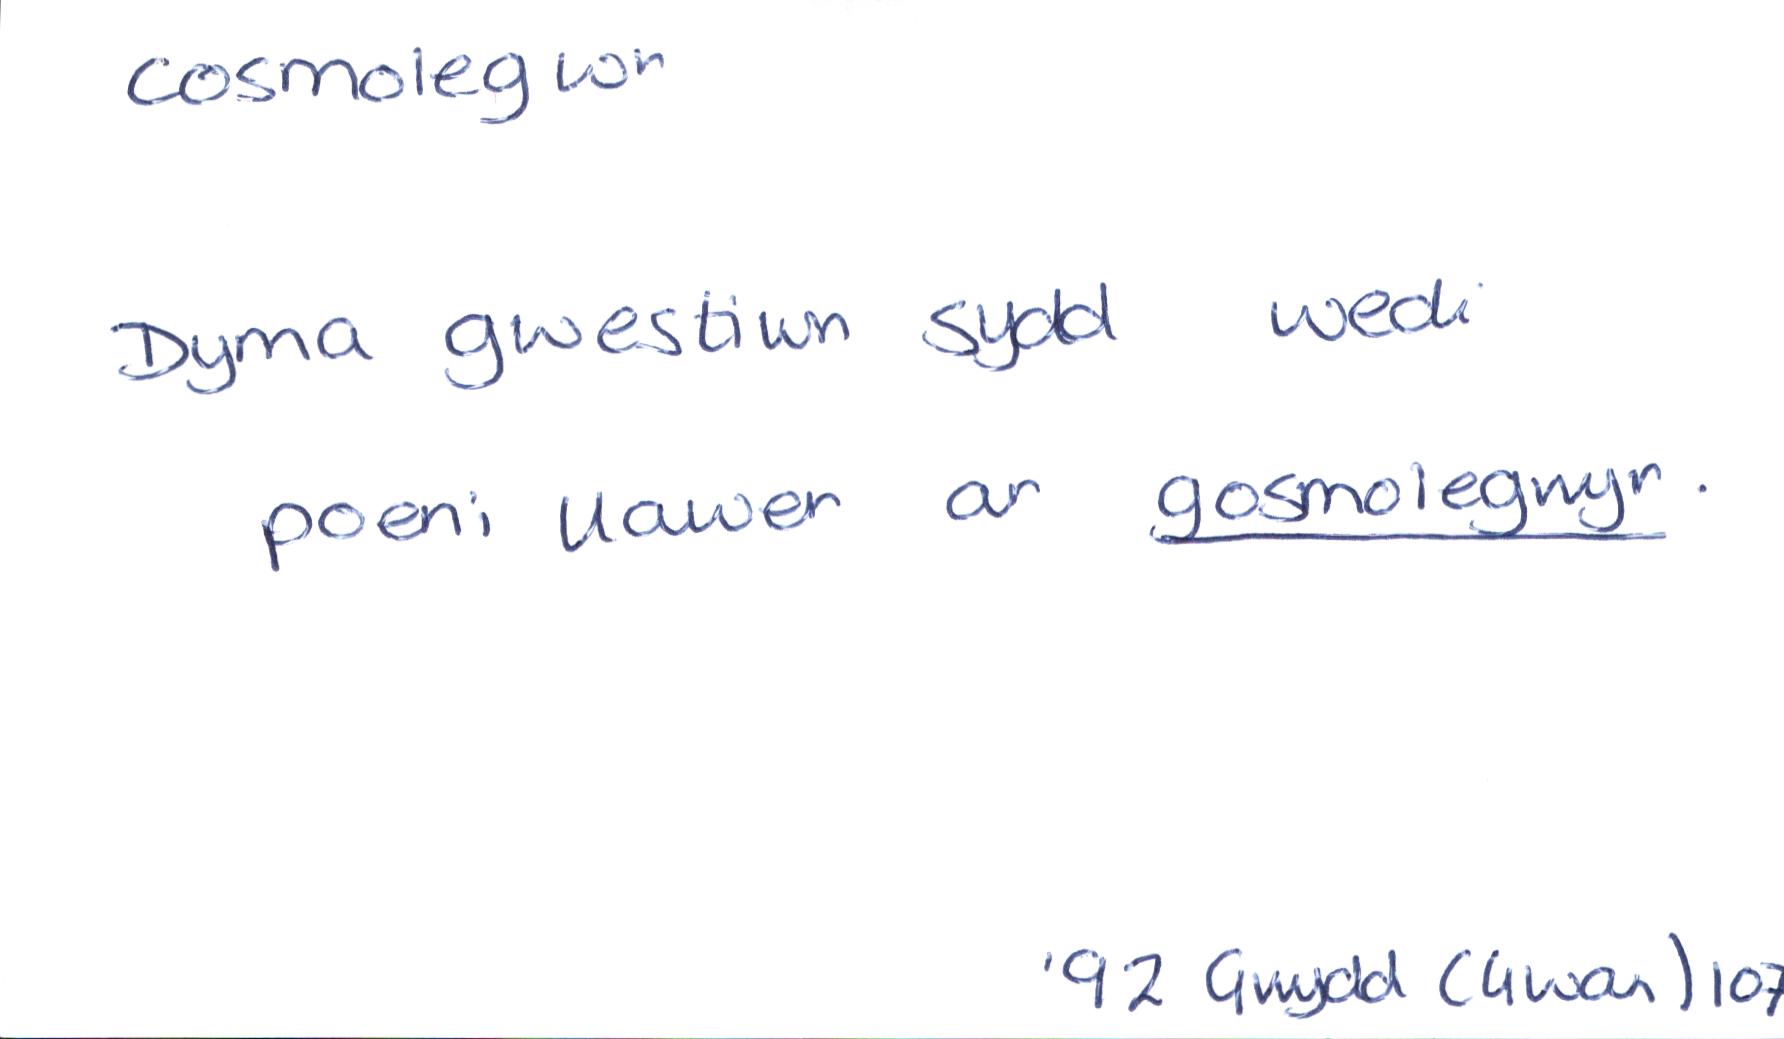 cosmolegwr
Dyma gwestiwn sydd wedi
poeni llawer ar gosmolegwyr.
'92 Gwydd (Gwan) 107